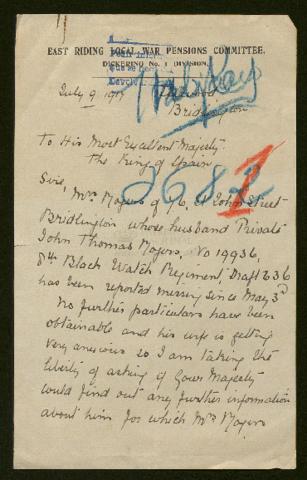 EAST RIDING LOCAL WAR PENSIONS COMMITTEE.
DICKERING No. 1 DIVISION.
July 9 1917
Bridlington
To His Most Excellent Majesty
The King of Spain
2682
1
Sire,
Mrs Mogers of St John Street
Bridlington whose husband Private
John Thomas Mogers, No 19936,
8th Black Watch Regiment, Draft 236
has been reported missing since May 3rd
No further particulars have been
obtainable and his wife is getting
very anxious so I am taking the
liberty of asking if Your Majesty
could find out any further information
about him for which Mrs Mogers